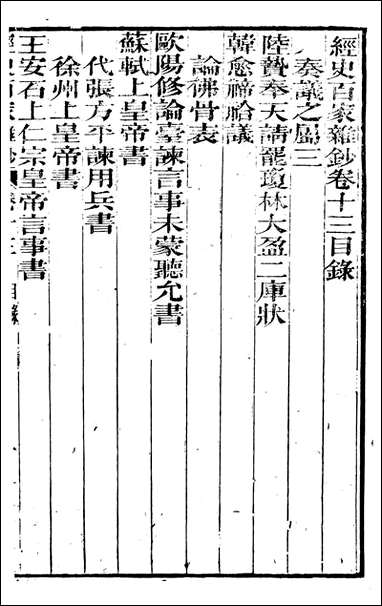 經史百家雜鈔卷十三目錄
奏議之屬三
陸贄奉天請罷瓊林大盈二庫狀
韓愈禘祫議
論佛骨表
歐陽修論臺諫言事未蒙聽允書
蘇軾上皇帝書
代張方平諫用兵書
徐州上皇帝書
王安石上仁宗皇帝言事書